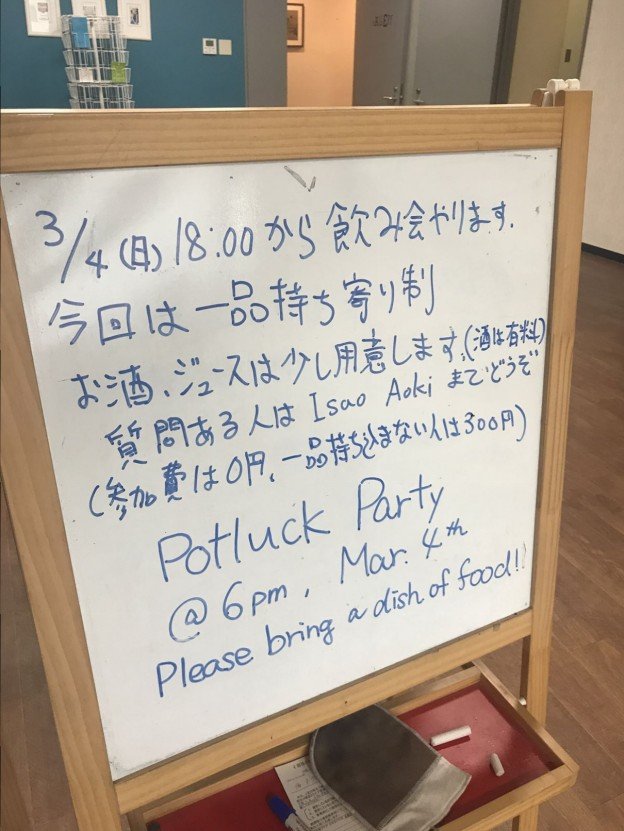 3/4(日)18:00から飲み会やります.
今回は一品持ち寄り制
お酒、ジュースは少し用意します。(酒は有料)
質問ある人は Isao Aoki までどうぞ
(参加費は0円、一品持ち込まない人は300円)
Potluck Party
@ 6pm, Mar. 4th
Please bring a dish of food!!